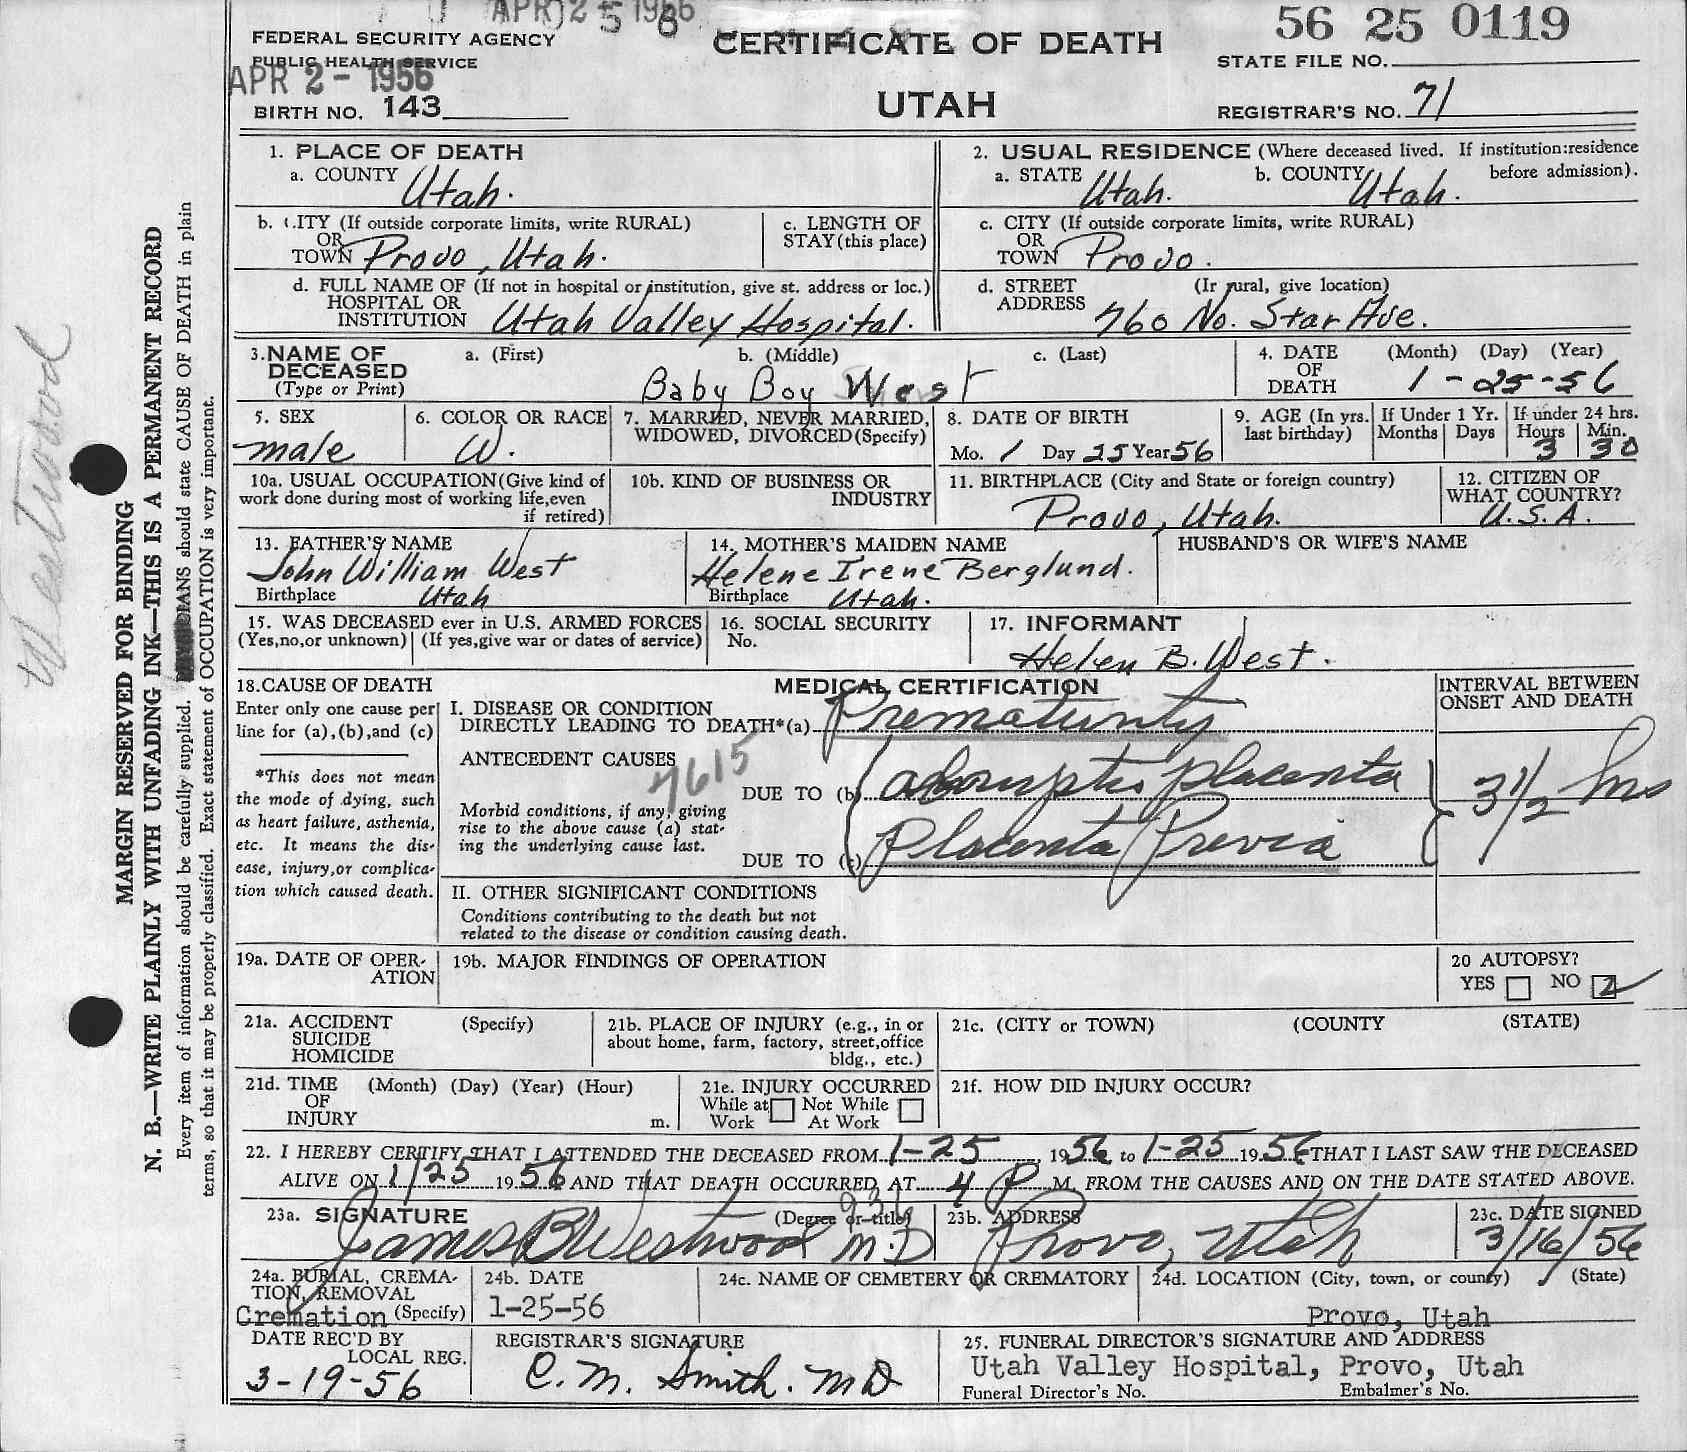 APR 2 1956
5 6
FEDERAL SECURITY AGENCY
PUBLIC HEALTH SERVICE
APR 2 - 1956
BIRTH NO. 143
CERTIFICATE OF DEATH
UTAH
56 25 0119
STATE FILE NO.
REGISTRAR'S NO. 71
1. PLACE OF DEATH
a. COUNTY Utah.
2. USUAL RESIDENCE (Where deceased lived. If institution:residence
before admission).
a. STATE Utah. b. COUNTY Utah.
b. CITY (If outside corporate limits, write RURAL)
OR
TOWN Provo, Utah.
c. LENGTH OF
STAY (this place)
c. CITY (If outside corporate limits, write RURAL)
OR
TOWN Provo.
d. FULL NAME OF (If not in hospital or institution, give st. address or loc.)
HOSPITAL OR
INSTITUTION Utah Valley Hospital.
d. STREET (If rural, give location)
ADDRESS 760 No. Star Ave.
3. NAME OF
DECEASED
(Type or Print)
a. (First) b. (Middle) c. (Last)
Baby Boy West
4. DATE
OF
DEATH
(Month) (Day) (Year)
1-25-56
5. SEX
male
6. COLOR OR RACE
W.
7. MARRIED, NEVER MARRIED,
WIDOWED, DIVORCED (Specify)
8. DATE OF BIRTH
Mo. 1 Day 25 Year 56
9. AGE (In yrs.
last birthday)
If Under 1 Yr.
Months Days
If under 24 hrs.
Hours Min.
3 30
10a. USUAL OCCUPATION (Give kind of
work done during most of working life, even
if retired)
10b. KIND OF BUSINESS OR
INDUSTRY
11. BIRTHPLACE (City and State or foreign country)
Provo, Utah.
12. CITIZEN OF
WHAT COUNTRY?
U.S.A.
13. FATHER'S NAME
John William West
Birthplace Utah
14. MOTHER'S MAIDEN NAME
Helene Irene Berglund.
Birthplace Utah.
HUSBAND'S OR WIFE'S NAME
15. WAS DECEASED ever in U.S. ARMED FORCES
(Yes, no, or unknown) (If yes, give war or dates of service)
16. SOCIAL SECURITY
No.
17. INFORMANT
Helen B. West.
18. CAUSE OF DEATH
Enter only one cause per
line for (a), (b), and (c)
*This does not mean
the mode of dying, such
as heart failure, asthenia,
etc. It means the dis-
ease, injury, or complica-
tion which caused death.
MEDICAL CERTIFICATION
I. DISEASE OR CONDITION
DIRECTLY LEADING TO DEATH*(a) Prematurity
ANTECEDENT CAUSES
7615
Morbid conditions, if any, giving
rise to the above cause (a) stat-
ing the underlying cause last.
DUE TO (b) abruptio placenta
DUE TO (c) Placenta Previa
INTERVAL BETWEEN
ONSET AND DEATH
3 1/2 hrs
II. OTHER SIGNIFICANT CONDITIONS
Conditions contributing to the death but not
related to the disease or condition causing death.
19a. DATE OF OPER-
ATION
19b. MAJOR FINDINGS OF OPERATION
20 AUTOPSY?
YES NO
21a. ACCIDENT (Specify)
SUICIDE
HOMICIDE
21b. PLACE OF INJURY (e.g., in or
about home, farm, factory, street, office
bldg., etc.)
21c. (CITY or TOWN) (COUNTY (STATE)
21d. TIME (Month) (Day) (Year) (Hour)
OF
INJURY m.
21e. INJURY OCCURRED
While at Not While
Work At Work
21f. HOW DID INJURY OCCUR?
22. I HEREBY CERTIFY THAT I ATTENDED THE DECEASED FROM 1-25, 1956 to 1-25 1956 THAT I LAST SAW THE DECEASED
ALIVE ON 1/25 1956 AND THAT DEATH OCCURRED AT 4 P M. FROM THE CAUSES AND ON THE DATE STATED ABOVE.
23a. SIGNATURE (Degree or title)
James B Westwood M.D
23b. ADDRESS
Provo, Utah
23c. DATE SIGNED
3/16/56
24a. BURIAL, CREMA-
TION, REMOVAL
Cremation (Specify)
24b. DATE
1-25-56
24c. NAME OF CEMETERY OR CREMATORY
24d. LOCATION (City, town, or county) (State)
Provo, Utah
DATE REC'D BY
LOCAL REG.
3-19-56
REGISTRAR'S SIGNATURE
C. M. Smith. MD
25. FUNERAL DIRECTOR'S SIGNATURE AND ADDRESS
Utah Valley Hospital, Provo, Utah
Funeral Director's No. Embalmer's No.
Westwood
MARGIN RESERVED FOR BINDING
N. B.—WRITE PLAINLY WITH UNFADING INK—THIS IS A PERMANENT RECORD
Every item of information should be carefully supplied. should state CAUSE OF DEATH in plain
terms, so that it may be properly classified. Exact statement of OCCUPATION is very important.